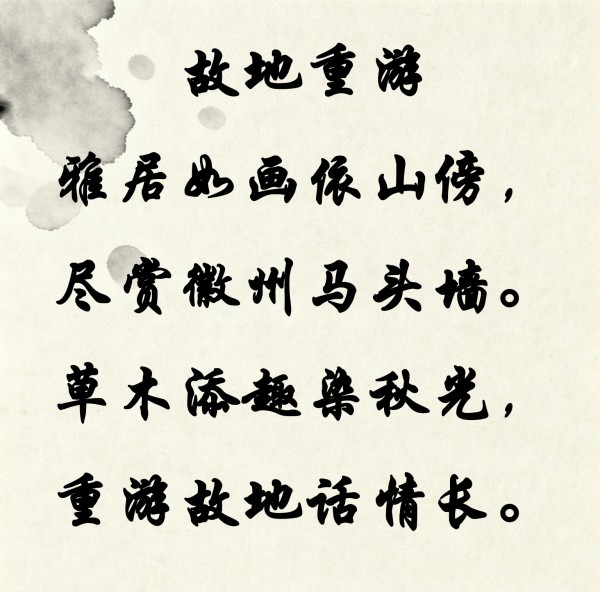 故地重游
雅居如画依山傍，
尽赏徽州马头墙。
草木添趣染秋光，
重游故地话情长。